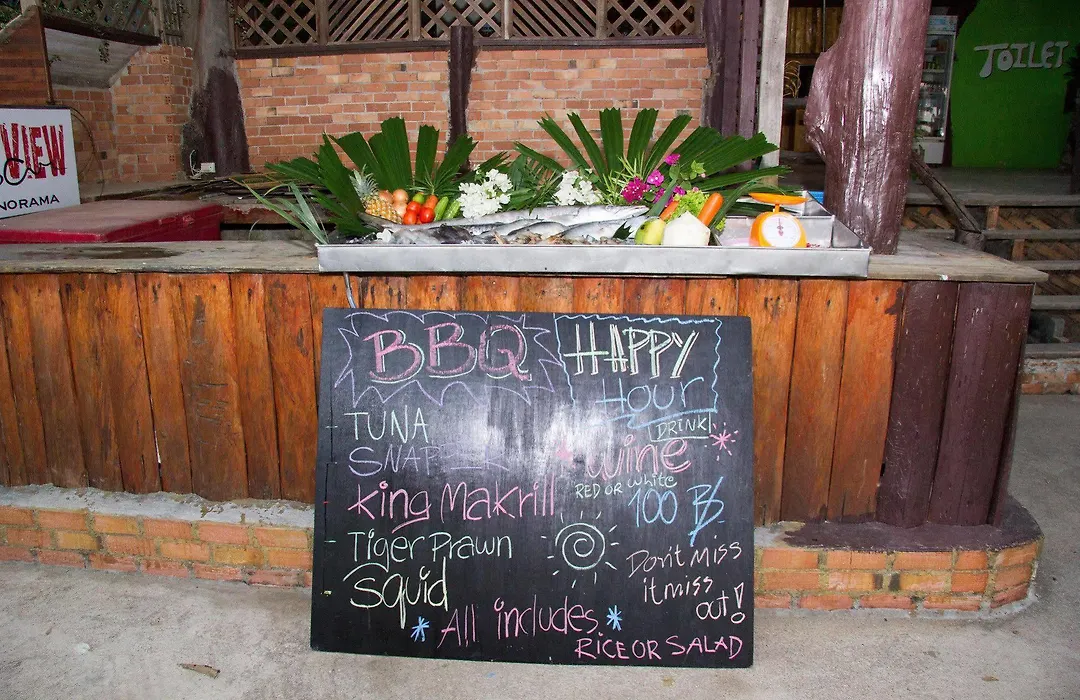 TOILET
VIEW
NORAMA
BBQ
TUNA
SNAPER
King Makrill
Tiger Prawn
Squid
All includes
RICE OR SALAD
HAPPY
Hour
DRINK
Wine
RED OR White
100 ฿
Don't Miss
it miss
out!